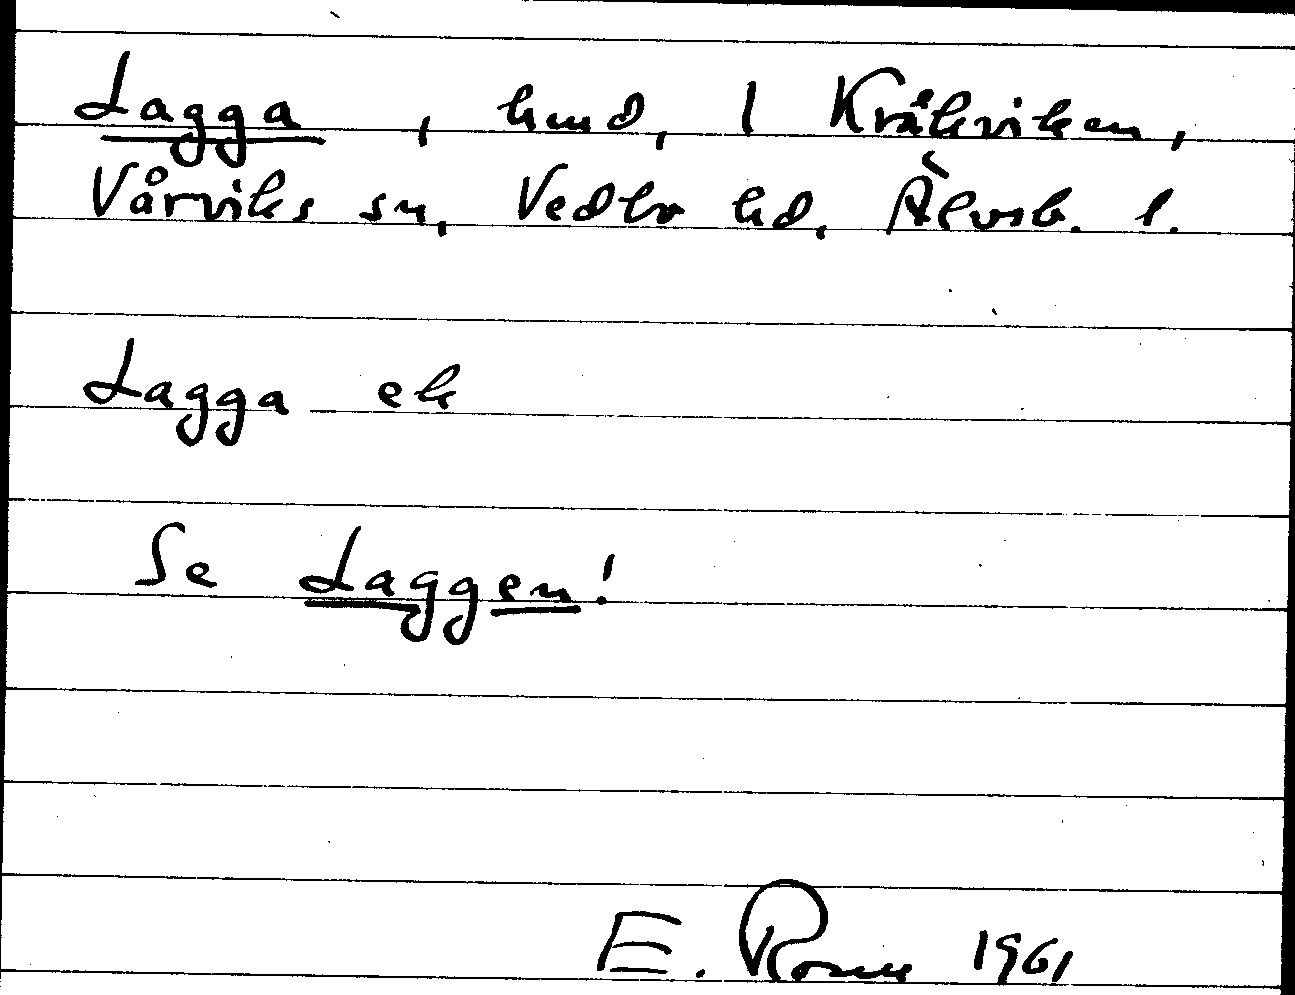 Lagga, hmd, 1 Kråkviken,
Vårviks sn, Vedbo hd, Älvsb. l.
Lagga ek
Se Laggen!
E. Rosell 1961